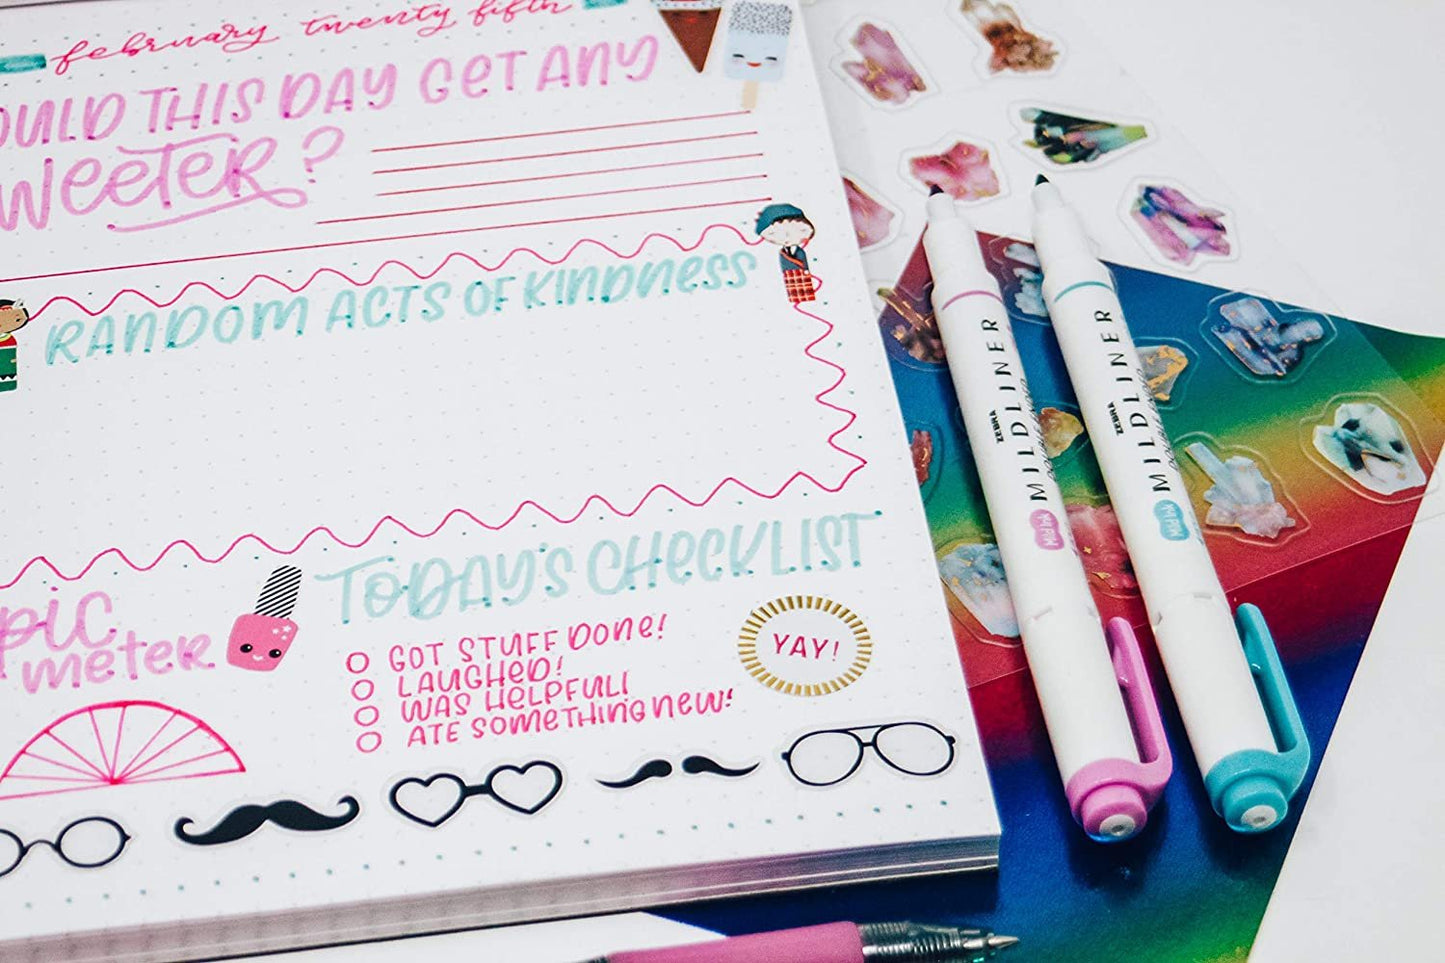 february twenty fifth
OULD THIS DAY GET ANY
WEETER?
RANDOM ACTS OF KINDNESS
TODAY'S CHECKLIST
PIC
meter
GOT STUFF Done!
LAUGHED!
WAS HELPFUL!
ATE SOMETHING new!
YAY!
ZEBRA
MILDLINER
Mild Ink
ZEBRA
MILDLINER
Mild Ink